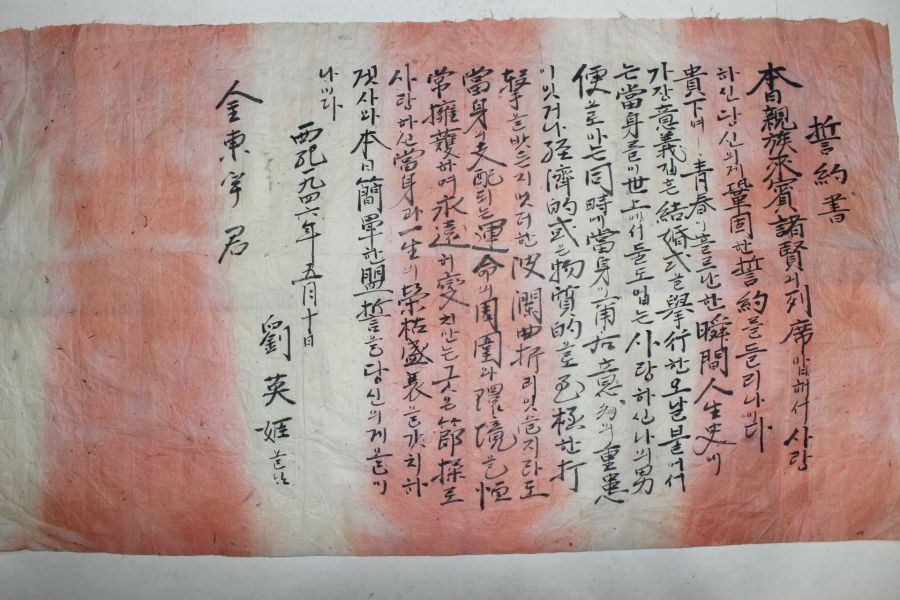 誓約書
本日親族來賓諸賢의列席아래서사랑
하신당신의게鞏固한誓約을들리나이다
貴下여 靑春이흘르난한瞬間人生史에
가장意義깊흔結婚式을擧行한오날붙어서
는當身를이世上에서둘도업는사랑하신나의男
便으로아는同時에當身의 意 重患
이잇거나經濟的或은物質的으로至極한打
擊을밧든지엇더한波瀾曲折이잇을지라도
當身의支配되는運命의周圍와環境을恒
常擁護하며永遠히變치안는굿은節操로
사랑하신當身과一生의榮枯盛衰을갓치하
겟사와本日簡單한盟誓을당신의게올이
나이다
西紀一九四六年五月十日
劉英姬
金東宇君